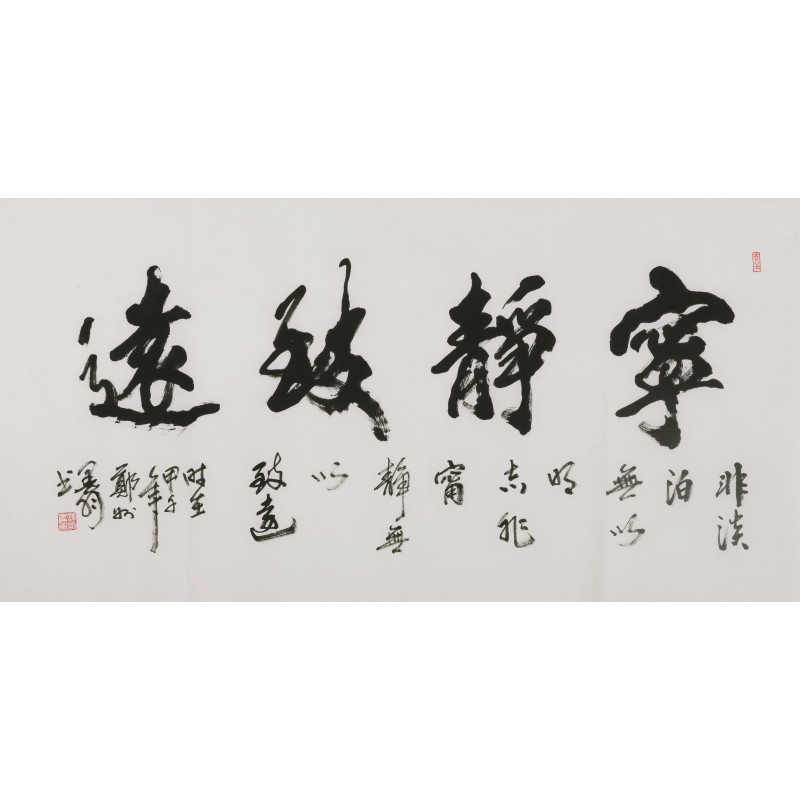 寧靜致遠
非淡
泊
無以
明
志非
甯
靜無
以
致遠
时在
甲午
年
鄭州
書